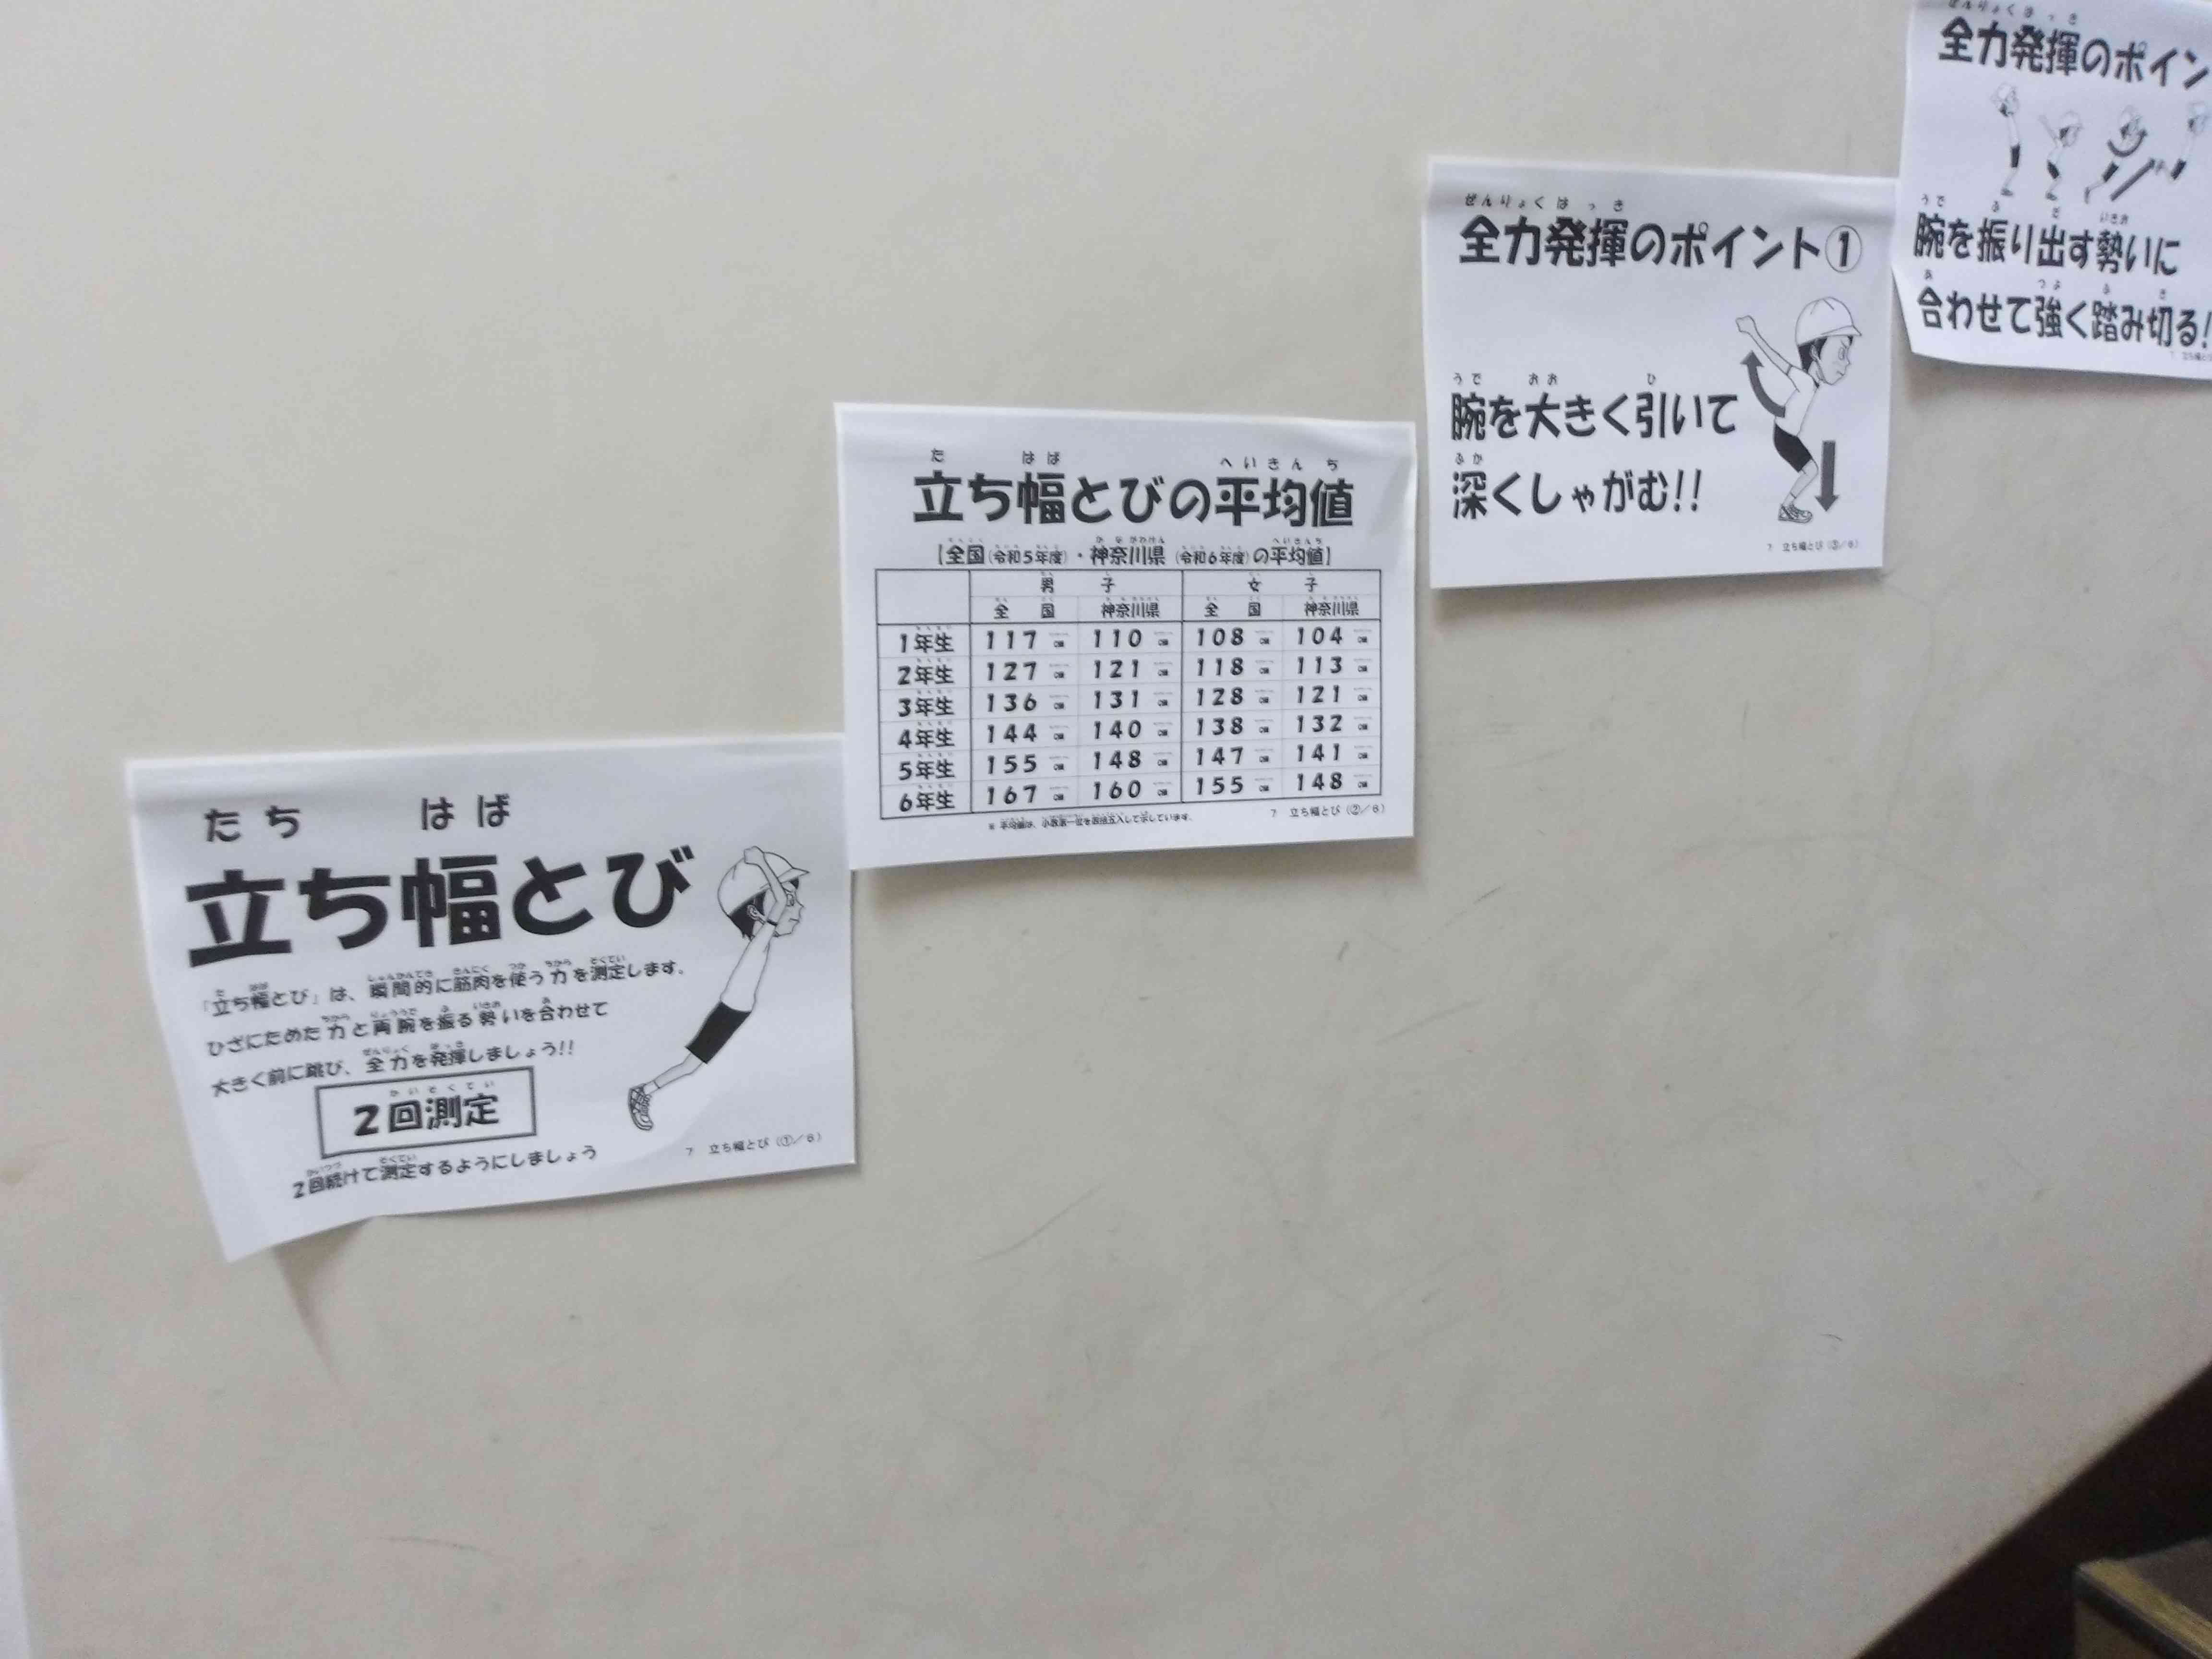 たち はば
立ち幅とび
「立ち幅とび」は、瞬間的に筋肉を使う力を測定します。
ひざにためた力と両腕を振る勢いを合わせて
大きく前に跳び、全力を発揮しましょう!!
かいそくてい
2回測定
2回続けて測定するようにしましょう
7 立ち幅とび (①/6)
た はば へいきんち
立ち幅とびの平均値
【全国(令和5年度)・神奈川県(令和6年度)の平均値】
男子 女子
全国 神奈川県 全国 神奈川県
1年生 117cm 110cm 108cm 104cm
2年生 127cm 121cm 118cm 113cm
3年生 136cm 131cm 128cm 121cm
4年生 144cm 140cm 138cm 132cm
5年生 155cm 148cm 147cm 141cm
6年生 167cm 160cm 155cm 148cm
※ 平均値は、小数第一位を四捨五入して示しています。
7 立ち幅とび (②/6)
ぜんりょくはっき
全力発揮のポイント①
うで おお ひ
腕を大きく引いて
ふか
深くしゃがむ!!
7 立ち幅とび (③/6)
ぜんりょくはっき
全力発揮のポイン
うで ふ だ いきお
腕を振り出す勢いに
あ つよ ふ き
合わせて強く踏み切る!
7 立ち幅と